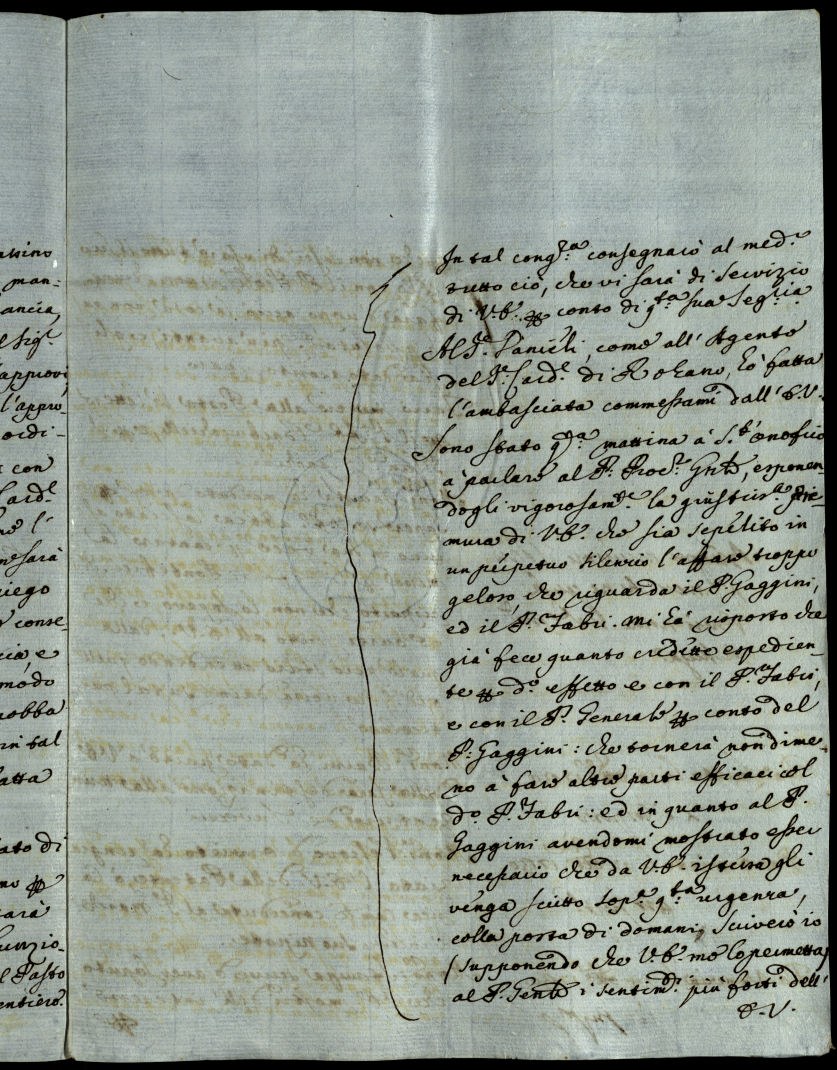 In tal cong.ra consegnarò al med.o
tutto ciò, che vi sarà di servizio
di V.S. conto di q.ta sua Seg.ria
Al S.r Danieli, come all'Agente
del S.r Card.l di Rohano, hò fatta
l'ambasciata commessami dall'E.V.
Sono stato q.ta mattina à S.t'Onofrio
à parlare al P. Proc.r Gn̄le, esponen
dogli vigorosam.te la giustiss.a pre-
mura di V.S. che sia sepelito in
un perpetuo silenzio l'affare troppo
geloso, che riguarda il P. Gaggini,
ed il P. Fabri. Mi hà risposto che
già fece quanto credette espedien_
te d.o effetto e con il P. Fabri,
e con il P. Generale conto del
P. Gaggini: che tornerà nondime_
no à fare altre parti efficaci col
d.o P. Fabri: ed in quanto al P.
Gaggini avendomi mostrato esser
necessario che da V.S. istessa gli
venga scritto sop.a q.ta urgenza,
colla posta di domani, scriverò io
(supponendo che V.S. me lo permetta)
al P. Gen̄le i sentim.ti più forti dell'
E.V.
assino
man:
ancia,
Sig.r
approvi
l'appro_
ordi-
con
Card.l
l'
sarà
piego
conse_
cia, e
modo
robba
in tal
atta
ato di
arà
unzio_
l Tasto
entiero.